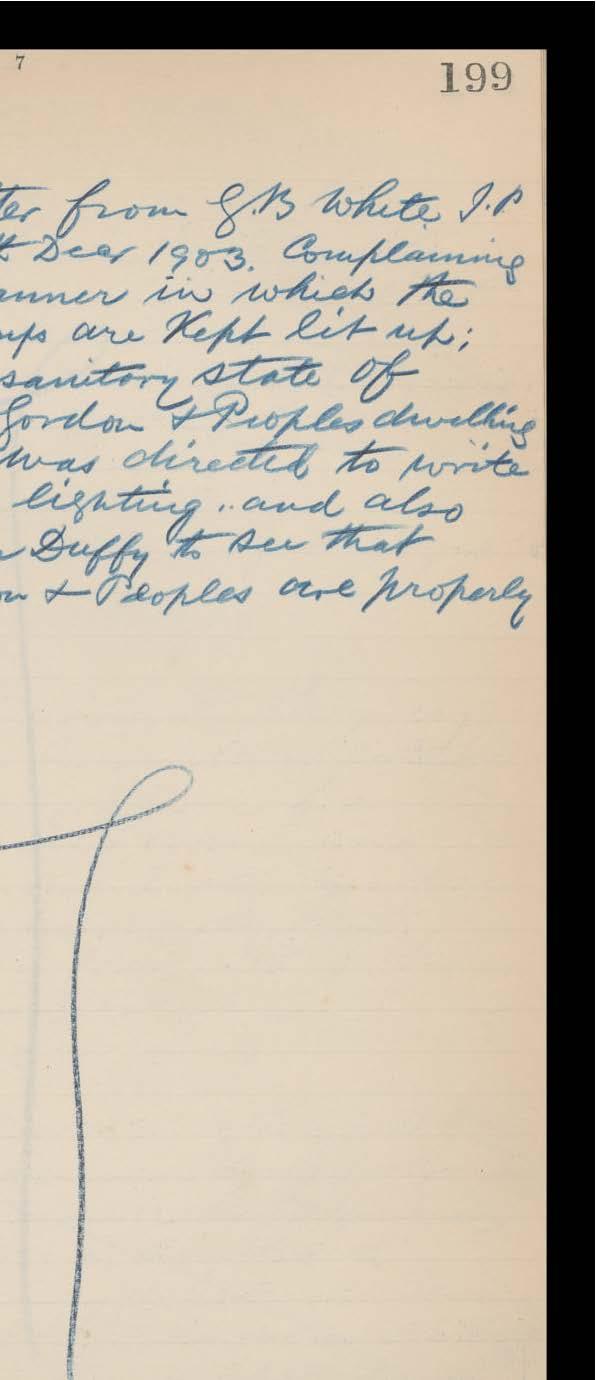 7
199
ter from G.B White J.P
Decr 1903. Complaining
anner in which the
mps are Kept lit up;
sanitary state of
Gordon & Peoples dwelling
was directed to write
lighting .. and also
Duffy to see that
on & Peoples are properly